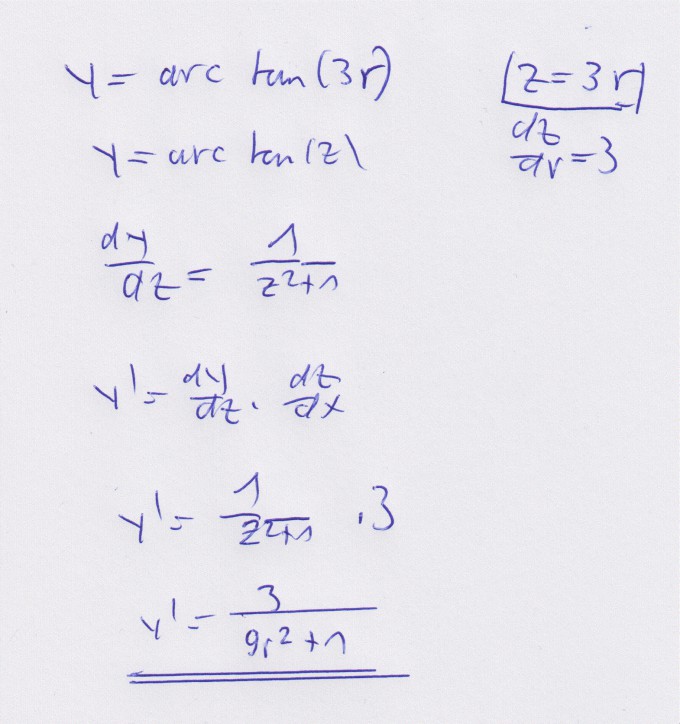 y = arc tan(3r)
[z = 3r]
y = arc tan(z)
dz/dr = 3
dy/dz = 1/(z²+1)
y' = dy/dz · dz/dx
y' = 1/(z²+1) · 3
y' = 3/(9r²+1)